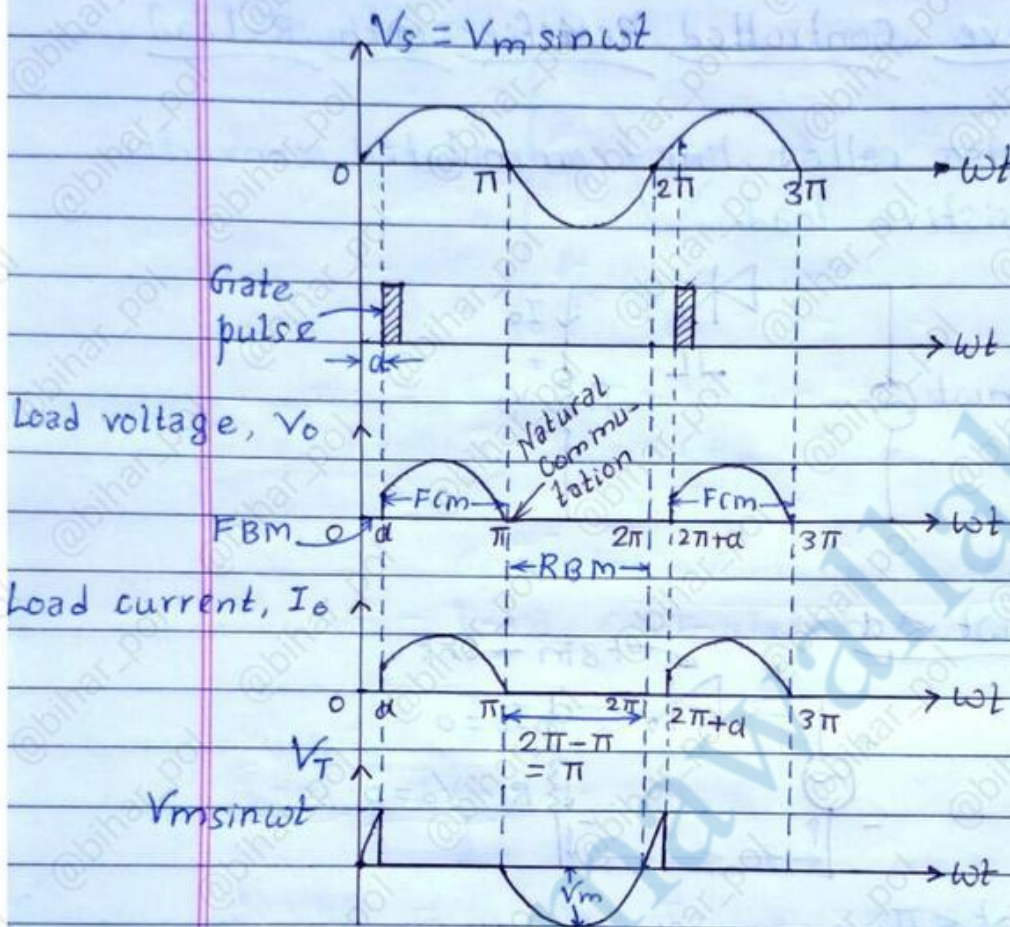 Vs = Vm sinωt
0 π 2π 3π ωt
Gate
pulse
α
ωt
Load voltage, Vo
Natural
Commu-
tation
FCM FCM
FBM 0 α π 2π 2π+α 3π ωt
RBM
Load current, Io
0 α π 2π 2π+α 3π ωt
2π-π
= π
VT
Vmsinωt
ωt
Vm
@bihar_pol